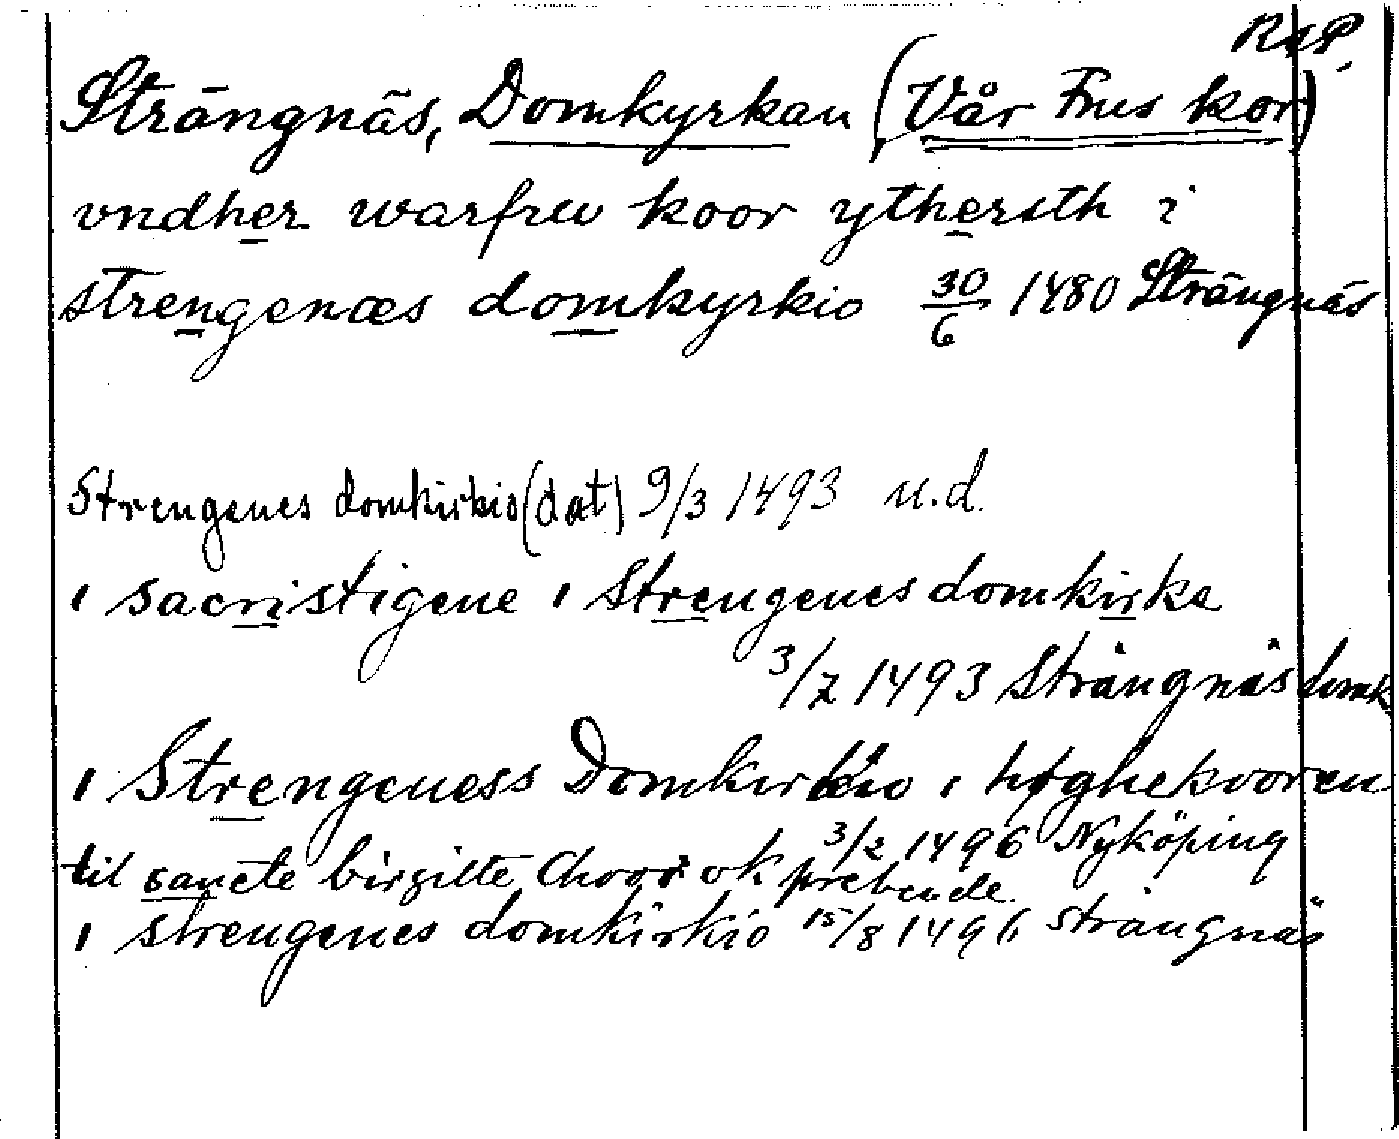 RAP.
Strängnäs, Domkyrkan (Vår Frus kor)
vndher warfrw koor ythersth i
strengenæs domkyrkio 30/6 1480 Strängnäs
Strengenes domkirkio (dat) 9/3 1493 u.d.
i sacristigene i Strengenes domkirke
3/2 1493 Strängnäs domk
i Strengeness Domkirkio i høghekooren
3/2 1496 Nyköping
til sancte birgitte Choor ok prebende
i strengenes domkirkio 15/8 1496 Strängnäs